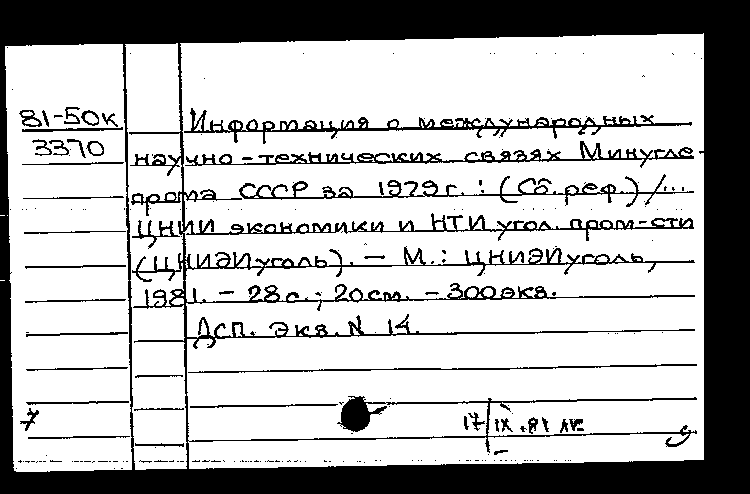 81-50к
3370
Информация о международных
научно-технических связях Минугле-
прома СССР за 1979 г. : (Сб. реф.) /...
ЦНИИ экономики и НТИ угол. пром-сти
(ЦНИЭИуголь). - М. : ЦНИЭИуголь,
1981. - 28 с. ; 20 см. - 300 экз.
Дсп. Экз. N 14.
7
17/IX.81